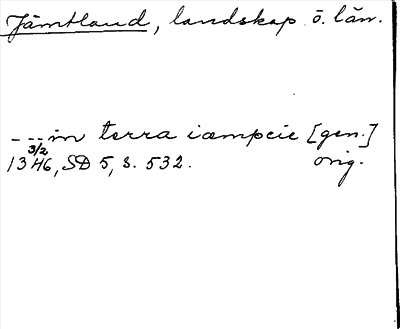 Jämtland, landskap o. län.
--- in terra iæmpcie [gen.]
3/2
1346, SD 5, s. 532. orig.